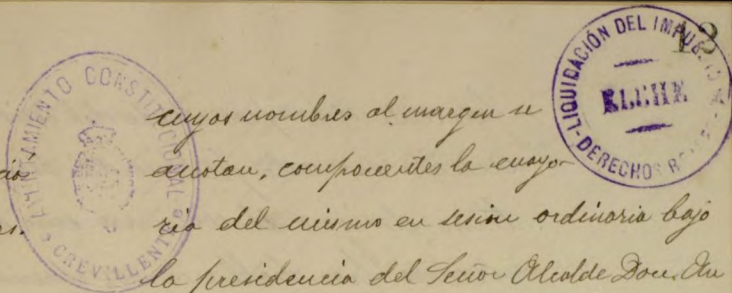 12
AYUNTAMIENTO CONSTITUCIONAL
CREVILLENTE
LIQUIDACIÓN DEL IMPUESTO
ELCHE
DERECHOS
cuyos nombres al margen se
anotan, componentes la mayo-
ria del mismo en sesion ordinaria bajo
la presidencia del Señor Alcalde Don